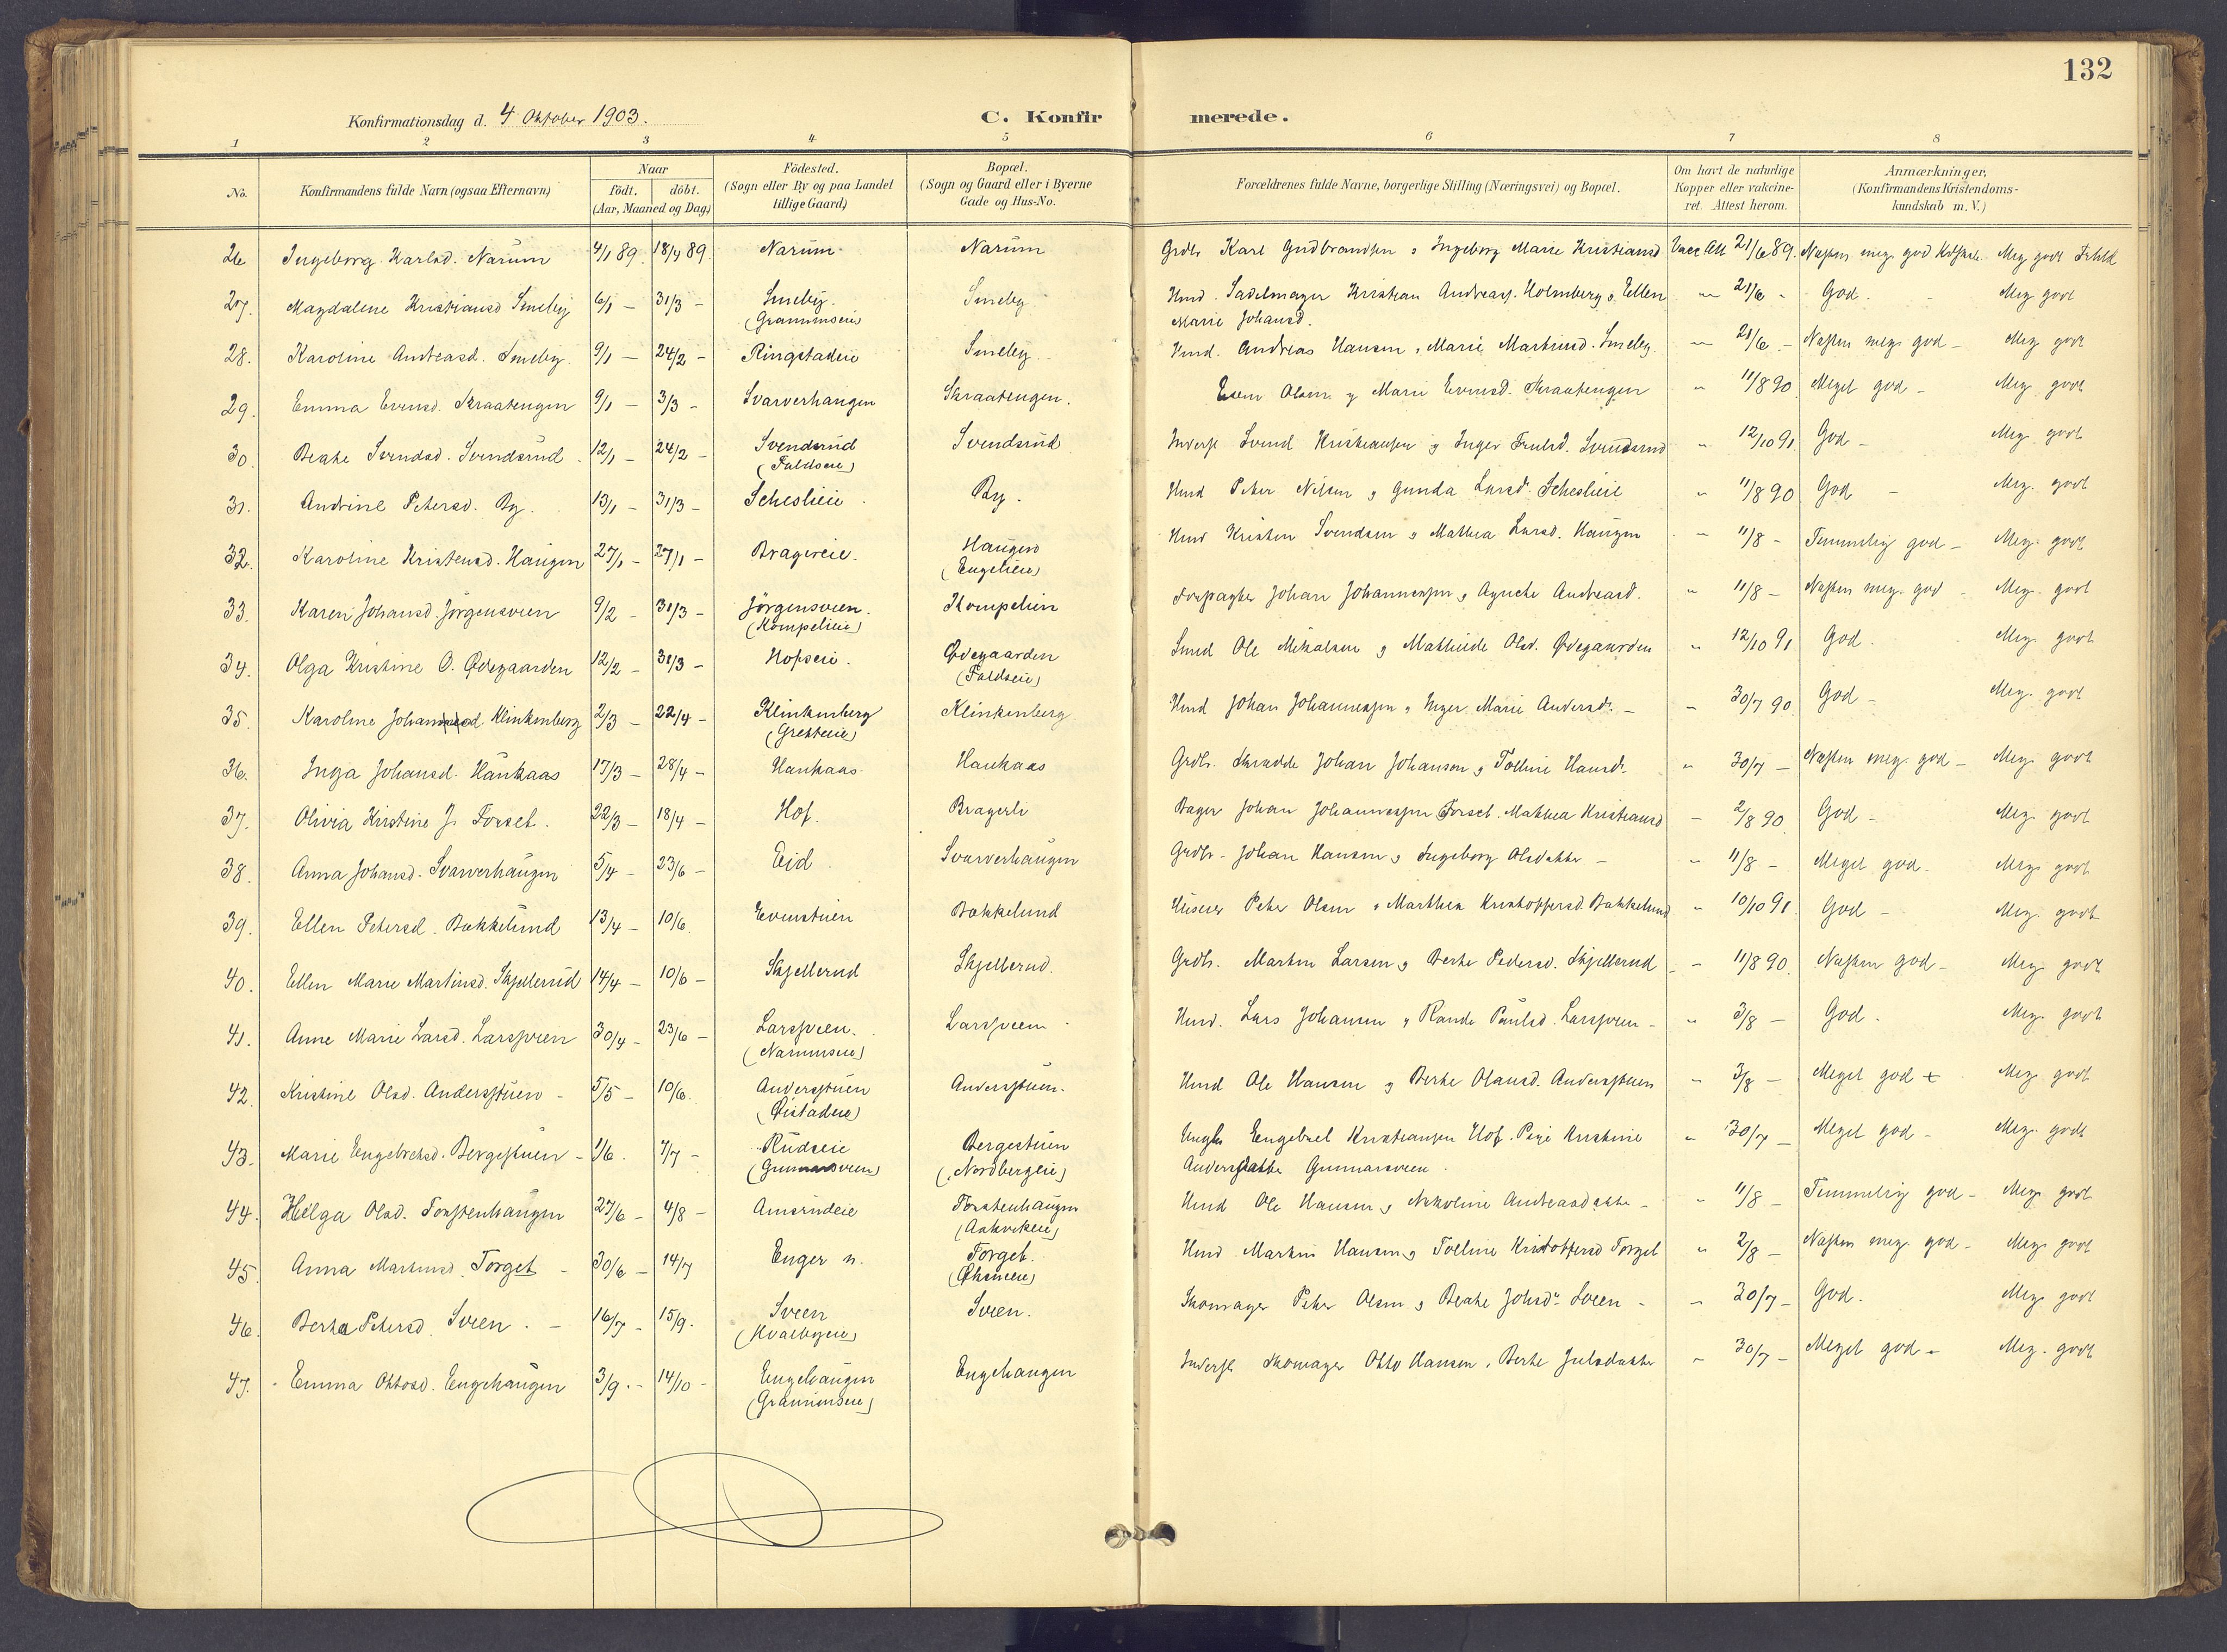 132
Konfirmationsdag d. 4 Oktober 1903.
C. Konfirmerede.
1 2 3 4 5 6 7 8
No.
Konfirmandens fulde Navn (ogsaa Efternavn)
Naar
födt. döbt.
(Aar, Maaned og Dag)
Födested.
(Sogn eller By og paa Landet
tillige Gaard)
Bopæl.
(Sogn og Gaard eller i Byerne
Gade og Hus-No.
Forældrenes fulde Navne, borgerlige Stilling (Næringsvei) og Bopæl.
Om havt de naturlige
Kopper eller vakcine-
ret. Attest herom.
Anmærkninger,
(Konfirmandens Kristendoms-
kundskab m. V.)
26 Ingeborg Karlsd. Narum 4/1 89. 18/4 89. Narum Narum Grdbr. Karl Gudbrandsen & Ingeborg Marie Kristiansd Vacc. Att 21/6 89. Næsten meg. god Meg. godt
27. Magdalene Kristiansd Smeby 6/1 – 31/3 – Smeby. Smeby Hmd. Sadelmager Kristian Andreass. Holmberg & Ellen " 21/6 - God. Meg godt
(Grammseie) Marie Johansd.
28. Karoline Andreasd. Smeby. 9/1 – 24/2 – Ringstadeie Smeby Hmd. Andreas Hansen & Marie Martinsd. Smeby " 21/6 – Næsten meg. god – Meg godt
29. Emma Evensd. Skraatengen 9/1 – 3/3 – Svarverhaugen Skraatengen. Even Olsen & Marie Evensd. Skraatengen " 11/8 90. Meget god – Meg. godt
30. Beate Svendsd. Svendsrud 12/1 – 24/2 – Svendsrud Svendsrud Inderst Svend Kristiansen & Inger Svendsrud " 12/10 91. God – Meg. godt
(Faldseie)
31. Andrine Petersd. By. 13/1 – 31/3 – Scheslieie By. Hmd Peter Nilsen & Gunda Larsd. Scheslieie " 11/8 90 God – Meg. godt
32. Karoline Kristensd. Haugen 27/1 – 27/1 – Haugen Hmd Kristen Svendsen & Mathea Larsd. Haugen " 11/8 – Temmelig god – Meg. godt
(Engelieie)
33. Karen Johansd. Jörgensveen 9/2 – 31/3 – Jörgensveen. Kompelien Forpagter Johan Johannessen & Agnete Andreasd. " 11/8 – Næsten meg. god Meg. godt
(Kompelieie)
34. Olga Kristine O. Ødegaarden 12/2 – 31/3 – Hofseie. Ødegaarden Smed Ole Mikalsen & Mathilde Olsd. Ødegaarden " 12/10 91 God. Meg. godt
(Faldseie)
35. Karoline Johansd. Klinkenberg 2/3 – 22/4 – Klinkenberg Klinkenberg Hmd Johan Johannessen & Inger Marie Andersdr. – " 30/7 90. God – Meg. godt
(Gretteie)
36. Inga Johansd. Haukaas 17/3 – 28/4 – Haukaas. Haukaas Grdbr. Skrædder Johan Johansen & Tolline Hansdr. " 30/7 – Næsten meg. god – Meg. godt
37. Olivia Kristine J. Forset. 22/3 – 18/4 – Hof. Bragerli Bager Johan Johannessen Forset. Mathea Kristiansd " 2/8 90. God – Meg. godt
38. Anna Johansd. Svarverhaugen 5/4 – 23/6 – Eid. Svarverhaugen Grdbr. Johan Hansen & Ingeborg Olsdatter – " 11/8 – Meget god. Meg. godt
39. Ellen Petersd. Bakkelund 13/4 – 10/6. Evenstuen Bakkelund Huseier Peter Olsen & Marthea Kristoffersd. Bakkelund " 10/10 91. God – Meg. godt
40. Ellen Marie Martinsd. Skjellerud 14/4 – 10/6 – Skjellerud Skjellerud. Grdbr. Martin Larsen & Berte Pedersd. Skjellerud " 11/8 90. Næsten god – Meg. godt
41. Anne Marie Larsd. Larssveen 30/4 – 23/6 – Larssveen. Larssveen Hmd. Lars Johansen & Rande Paulsd. Larssveen – " 3/8 – God. Meg. godt
(Narumseie)
42. Kristine Olsd. Andersstuen – 5/5 – 10/6. Andersstuen Andersstuen. Hmd Ole Hansen & Berte Olausd. Andersstuen " 3/8 – Meget god + Meg. godt
(Øistadeie)
43. Marie Engebretsd. Bergestuen – 1/6. 7/7 – Rudseie Bergestuen Ungkr. Engebret Kristiansen Hof. Pige Kristine " 30/7 – Meget god – Meg. godt
(Gunnarsveen) (Nordbergeie) Andersdatter Gunnarsveen.
44. Helga Olsd. Torstenhaugen 27/6 – 4/8 – Amsrudeie Torstenhaugen Hmd Ole Hansen & Nikoline Andreasdatter – " 11/8 – Temmelig god – Meg. godt
45. Anna Martinsd. Torget – 30/6 – 14/7 Enger n. Torget. Hmd Martin Hansen & Tolline Kristoffersd Torget " 2/8 – Næsten meg. god – Meg. godt
46. Berta Petersd. Sveen. – 16/7 – 15/9. Sveen Sveen. Skomager Peter Olsen & Beate Johsdr. Sveen – " 30/7 – God. Meg. godt
(Kvalbyeie)
47. Emma Ottosd. Engehaugen 3/9. – 14/10 – Engehaugen Engehaugen Inderst Skomager Otto Hansen. Berte Julsdatter " 30/7 – Meget god – Meg. godt
(Grammseie)